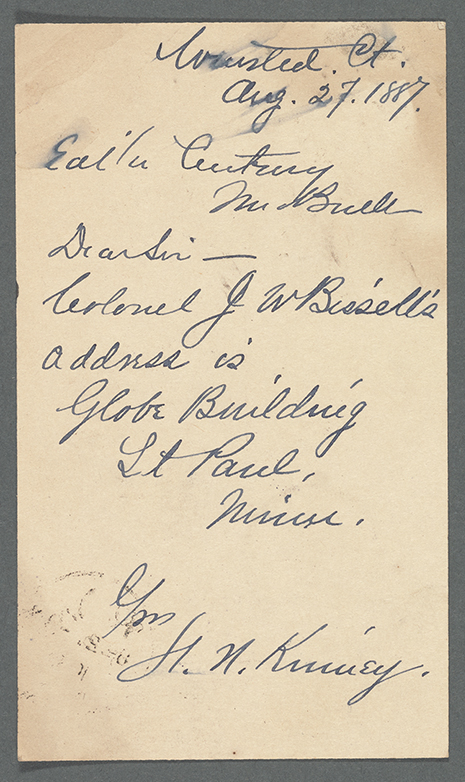 Winsted. Ct.
Aug. 27. 1887.
Ed'n Century
Mr Buel
Dear Sir —
Colonel J W Bissell's
address is
Globe Building
St Paul,
Minn.
Yrs
H. N. Kinney.